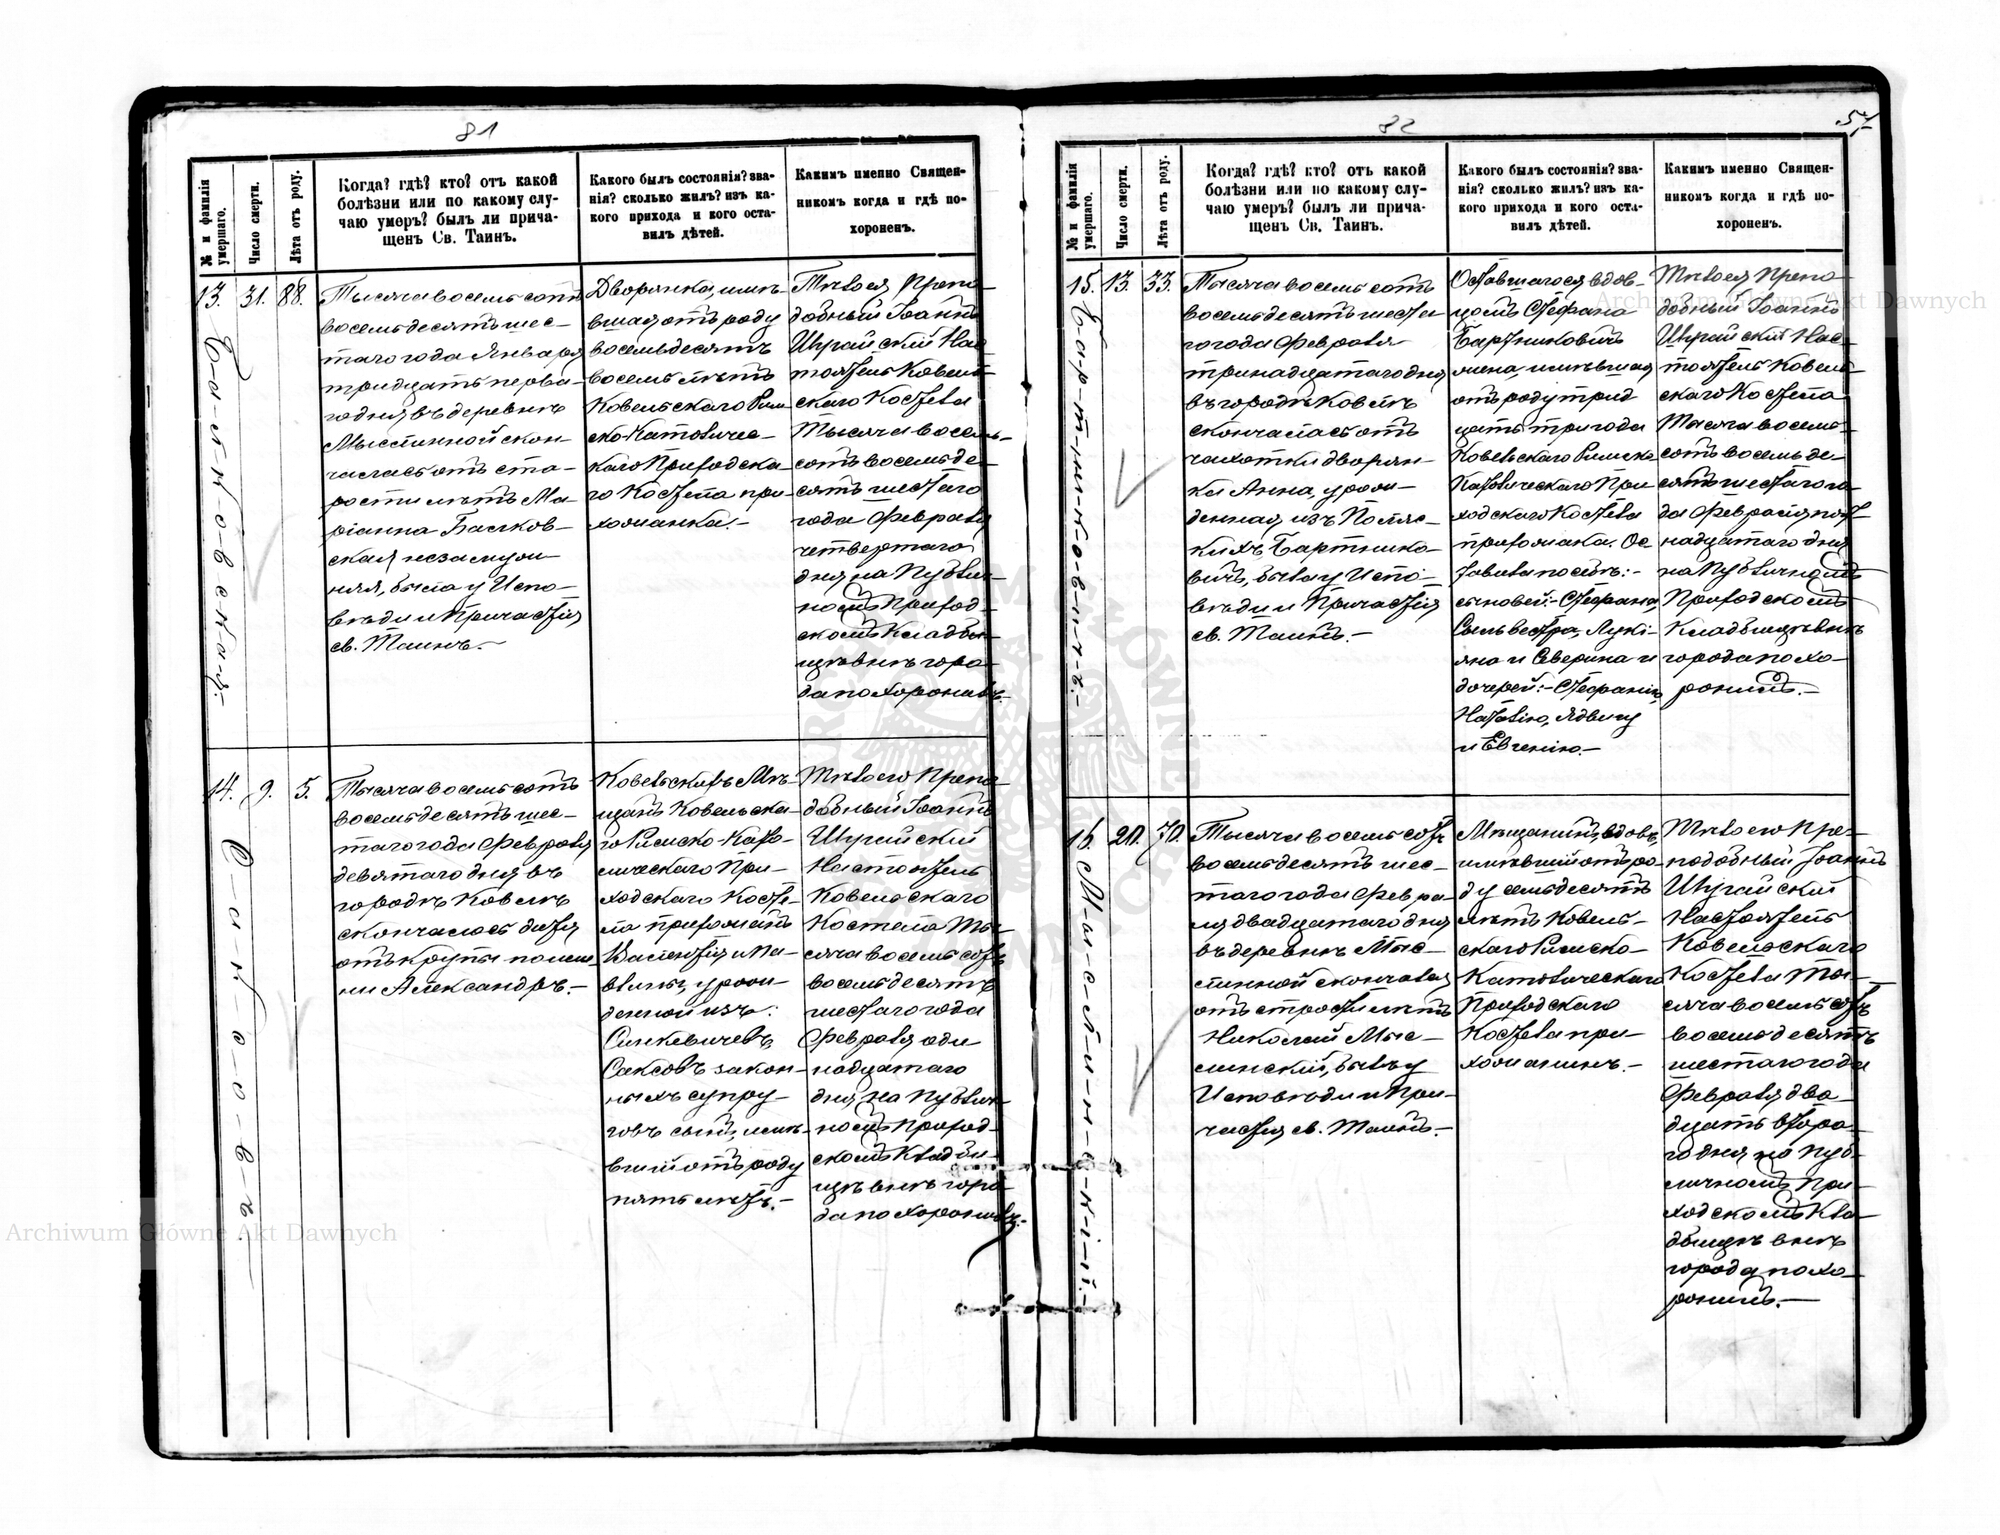 81
№ и фамилія умершаго.
Число смерти.
Лѣта отъ роду.
Когда? гдѣ? кто? отъ какой
болѣзни или по какому слу-
чаю умеръ? былъ ли прича-
щенъ Св. Таинъ.
Какого былъ состоянія? зва-
нія? сколько жилъ? изъ ка-
кого прихода и кого оста-
вилъ дѣтей.
Какимъ именно Священ-
никомъ когда и гдѣ по-
хороненъ.
13.
31.
88.
Тысяча восемьсотъ
восемьдесятъ шес-
таго года Января
тридцать перва-
го дня въ деревнѣ
Мыслинной скон-
чалась отъ ста-
рости лѣтъ Ма-
ріанна Балков-
ская незамуж
няя, была у Испо-
вѣди и Причастія
св. Таинъ.-
Дворянка, имѣ-
вшая отъ роду
восемьдесятъ
восемь лѣтъ
Ковельскаго Рим
ско-Католичес-
каго Приходска-
го Костела при-
хожанка.-
Тѣло ея Препо-
добный Іоаннъ
Шурайскій Нас-
тоятель Ковель-
скаго Костела
Тысяча восемь-
сотъ восемьде-
сятъ шестаго
года Февраля
четвертаго
дня на Публич-
номъ Приход-
скомъ Кладби-
щѣ внѣ горо-
да похоронилъ.
14.
9.
5.
Тысяча восемьсотъ
восемьдесятъ шес-
таго года Февраля
девятаго дня въ
городѣ Ковелѣ
скончалось дитя
отъ крупа по име-
ни Александръ.-
Ковельскихъ Мѣ-
щанъ Ковельска-
го Римско-Като-
лическаго При-
ходскаго Косте-
ла прихожанъ
Валентія и Па-
влины, урож-
денной изъ
Синкевичевъ
Саксовъ закон-
ныхъ супру-
говъ сынъ, имѣ-
вшій отъ роду
пять лѣтъ.-
Тѣло его Препо-
добный Іоаннъ
Шурайскій
Настоятель
Ковельскаго
Костела Ты-
сяча восемьсотъ
восемьдесятъ
шестаго года
Февраля оди
надцатаго
дня на Публич-
номъ Приход-
скомъ Кладби-
щѣ внѣ горо-
да похоронилъ.-
82
57
№ и фамилія умершаго.
Число смерти.
Лѣта отъ роду.
Когда? гдѣ? кто? отъ какой
болѣзни или по какому слу-
чаю умеръ? былъ ли прича-
щенъ Св. Таинъ.
Какого былъ состоянія? зва-
нія? сколько жилъ? изъ ка-
кого прихода и кого оста-
вилъ дѣтей.
Какимъ именно Священ-
никомъ когда и гдѣ по-
хороненъ.
15.
13.
33.
Бартниковичъ.-
Тысяча восемьсотъ
восемьдесятъ шеста-
го года Февраля
тринадцатаго дня
въ городѣ Ковелѣ
скончалась отъ
чахотки дворян-
ка Анна, урож-
денная изъ Поляс-
кихъ Бартнико-
вичъ, была у Испо-
вѣди и Причастія
св. Таинъ.-
Оставшагося вдов-
цомъ Стефана
Бартниковичъ
жена, имѣвшая
отъ роду трид
цать три года
Ковельскаго Римско
Католическаго При
ходскаго Костела
прихожанка. Ос
тавила по себѣ:-
сыновей:- Стефана,
Сильвестра, Лукі-
яна и Северина и
дочерей:- Стефанію,
Наталію, Ядвигу
и Евгенію.-
Тѣло ея Препо-
добный Іоаннъ
Шурайскій Нас-
тоятель Ковель-
скаго Костела
Тысяча восемь-
сотъ восемьде-
сятъ шестаго го-
да Февраля пят-
надцатаго дня
на Публичномъ
Приходскомъ
Кладбищѣ внѣ
города похо-
ронилъ.-
16.
20.
70.
Мыслинскій.-
Тысяча восемьсотъ
восемьдесятъ шес-
таго года Февра-
ля двадцатаго дня
въ деревнѣ Мыс-
линной скончался
отъ старости лѣтъ
Николай Мыс-
линскій, былъ у
Исповѣди и При-
частія св. Таинъ.-
Мѣщанинъ, вдовъ,
имѣвшій отъ ро-
ду семьдесятъ
лѣтъ Ковель-
скаго Римско-
Католическаго
Приходскаго
Костела при-
хожанинъ.-
Тѣло его Пре-
подобный Іоаннъ
Шурайскій
Настоятель
Ковельскаго
Костела Ты-
сяча восемьсотъ
восемьдесятъ
шестаго года
Февраля два-
дцать втора-
го дня на Пуб-
личномъ При-
ходскомъ Кла-
дбищѣ внѣ
города похо-
ронилъ.-
Archiwum Główne Akt Dawnych
Archiwum Główne Akt Dawnych